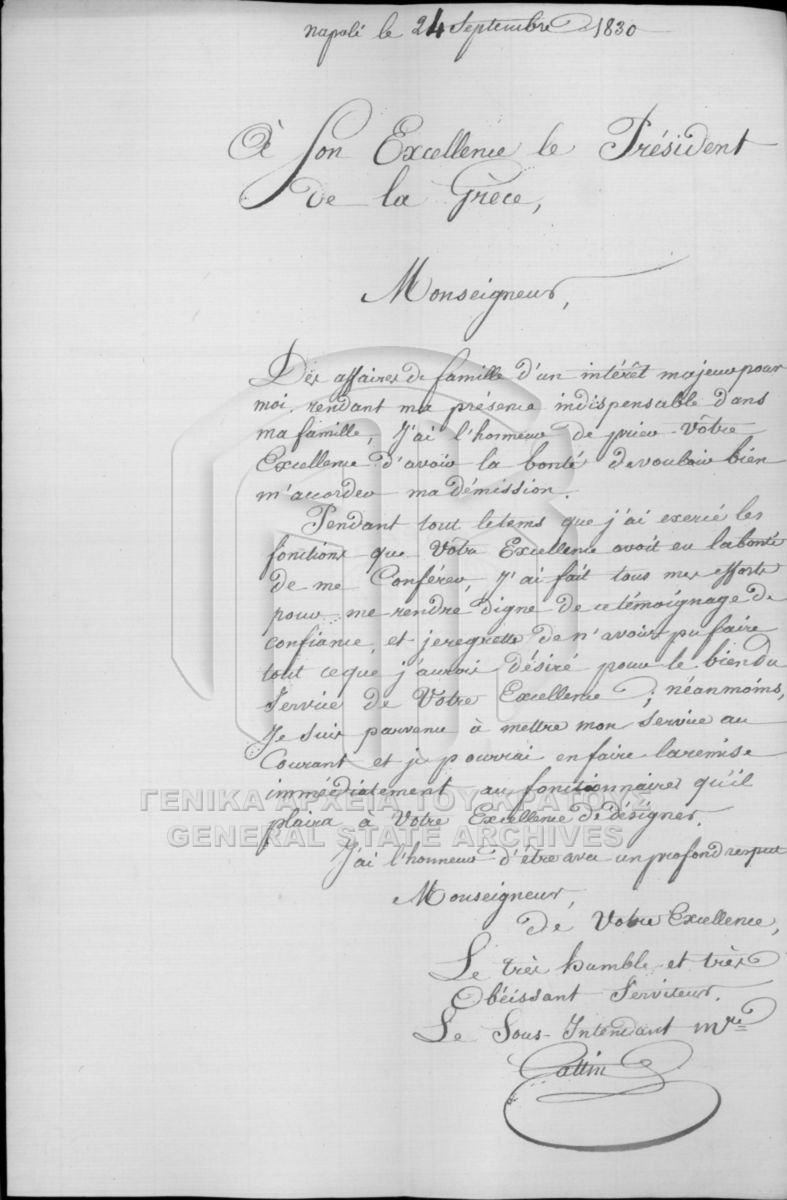 Napoli le 24 Septembre 1830
A Son Excellence le Président
de la Grèce,
Monseigneur,
Des affaires de famille d'un intérêt majeur pour
moi, rendant ma présence indispensable dans
ma famille, J'ai l'honneur de prier Vôtre
Excellence d'avoir la bonté de vouloir bien
m'accorder ma démission.
Pendant tout le tems que j'ai exercé les
fonctions que Vôtre Excellence avoit eu la bonté
de me Conférer, J'ai fait tous mes efforts
pour me rendre digne de ce témoignage de
confiance, et je regrette de n'avoir pu faire
tout ce que j'aurois désiré pour le bien du
Service de Votre Excellence ; néanmoins,
Je suis parvenu à mettre mon service au
Courant et je pourrai en faire la remise
immédiatement au fonctionnaire qu'il
plaira à Votre Excellence de désigner.
ΓΕΝΙΚΑ ΑΡΧΕΙΑ ΤΟΥ ΚΡΑΤΟΥΣ
GENERAL STATE ARCHIVES
J'ai l'honneur d'être avec un profond respect
Monseigneur,
de Votre Excellence,
Le très humble et très
Obéissant Serviteur.
Le Sous-Intendant mre